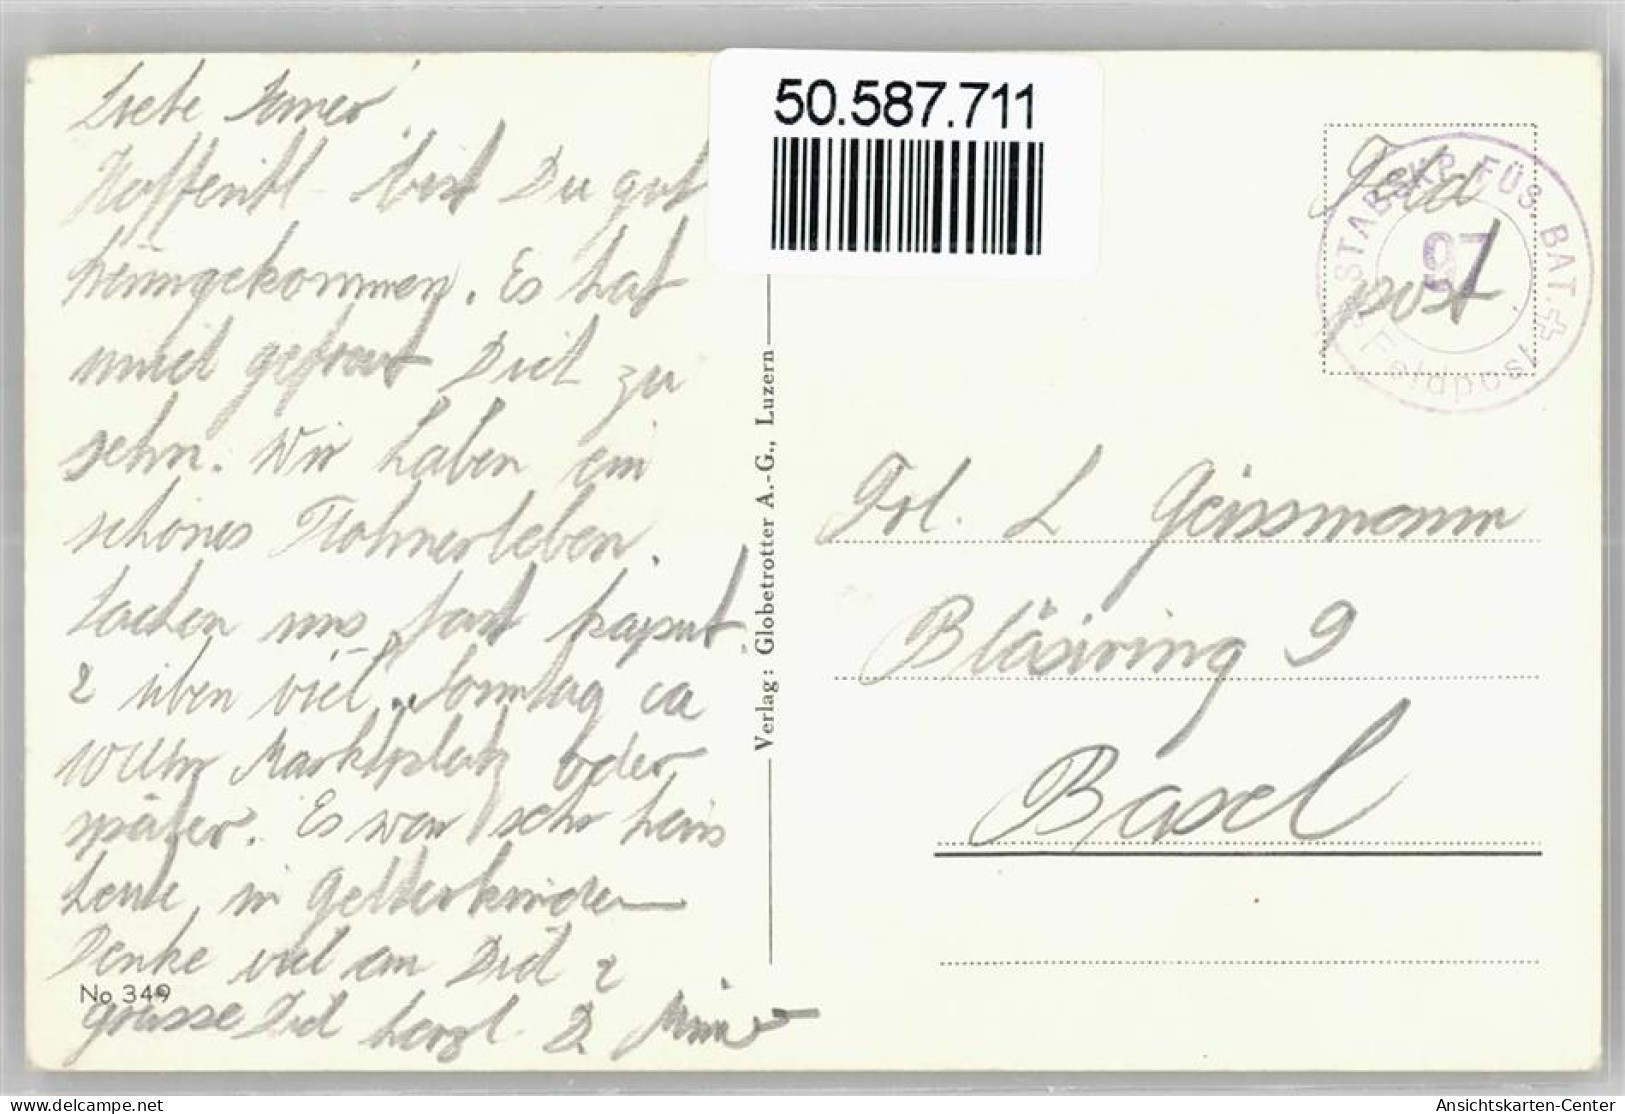 50.587.711
Liebe
Hoffentl. bist Du gut
heimgekommen. Es hat
mich gefreut Dich zu
sehn. Wir haben ein
schönes
Lachen uns fast kaput
& üben viel. Sonntag ca
10 Uhr Marktplatz oder
später. Es war scho heiss
heute, in Gelterkinden
Denke viel an Dich &
grüsse Dich herzl. D.
No 349
Verlag: Globetrotter A.-G., Luzern
STABSKP. FÜS. BAT. 97
Feldpost
Feld
post
Frl. L Geissmann
Bläsiring 9
Basel
delcampe.net
Ansichtskarten-Center